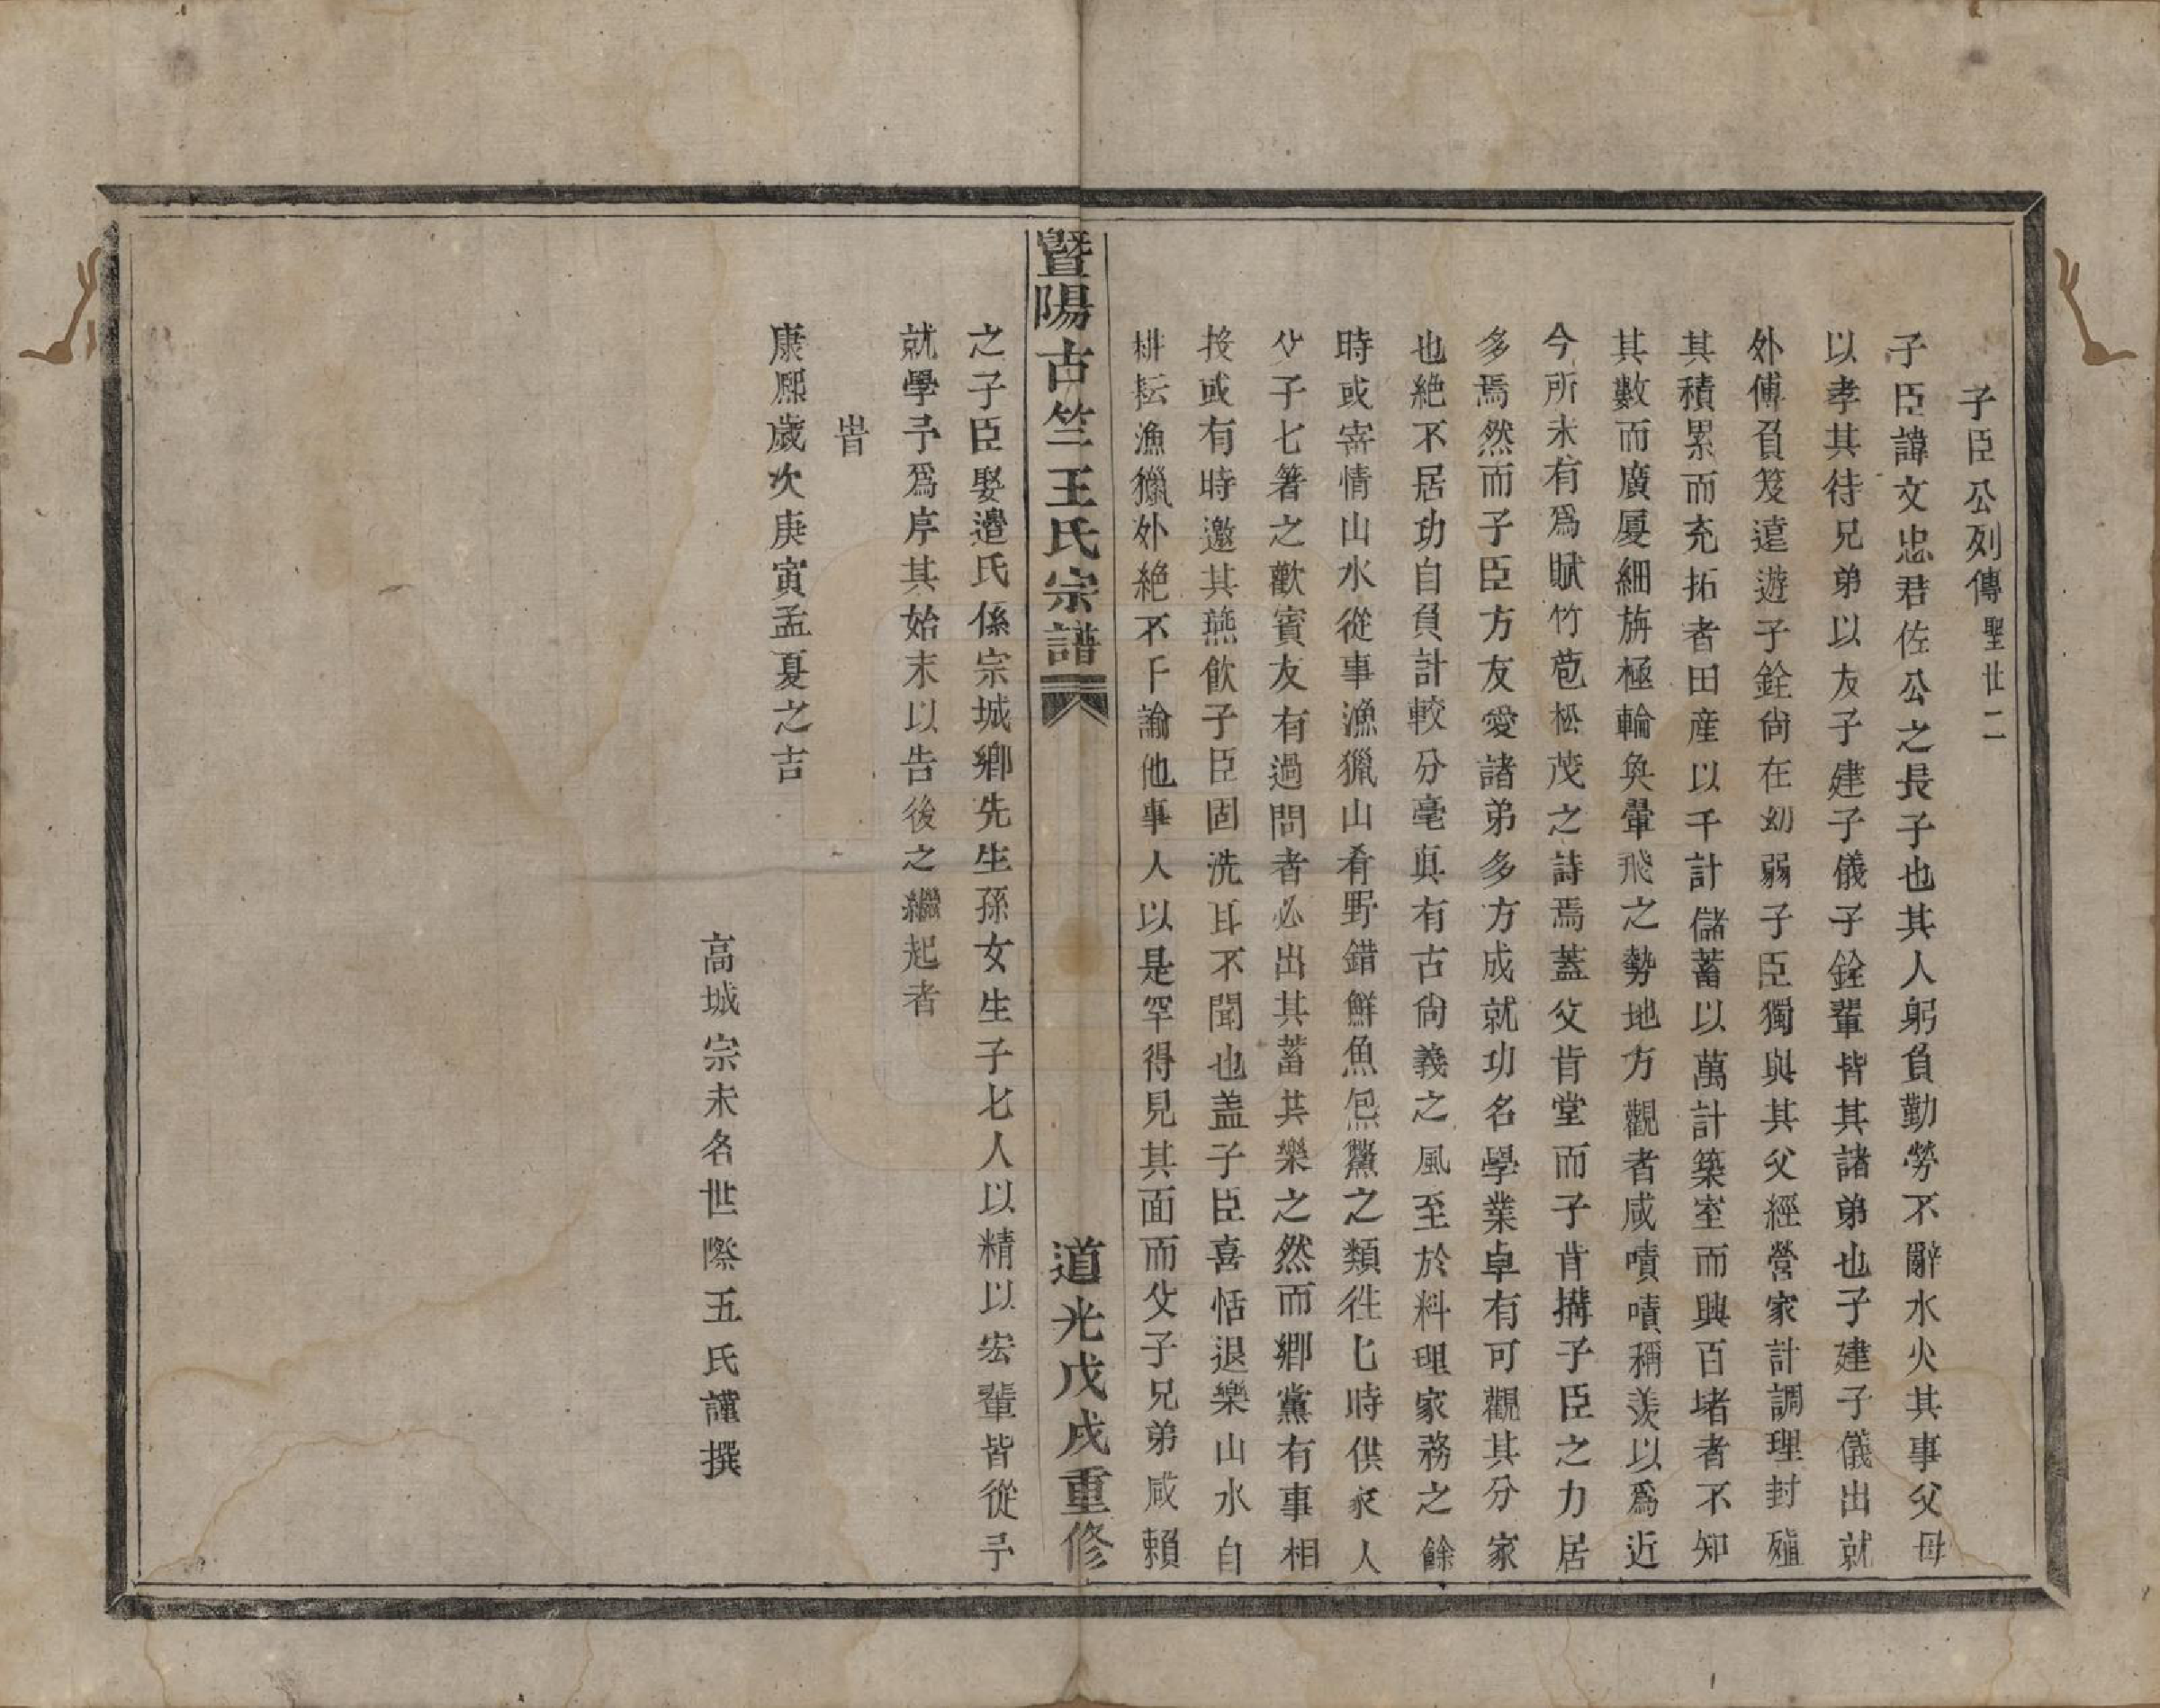 子臣公列傳 聖世二
子臣諱文忠君佐公之長子也其人躬負勤勞不辭水火其事父母
以孝其待兄弟以友子建子儀子銓輩皆其諸弟也子建子儀出就
外傅負笈遠遊子銓尙在幼弱子臣獨與其父經營家計調理封殖
其積累而充拓者田産以千計儲蓄以萬計築室而興百堵者不知
其數而廣厦細旃極輪奐翬飛之勢地方觀者咸嘖嘖稱羡以爲近
今所未有爲賦竹苞松茂之詩焉蓋父肯堂而子肯搆子臣之力居
多焉然而子臣方友愛諸弟多方成就功名學業卓有可觀其分家
也絶不居功自負計較分毫眞有古尙義之風至於料理家務之餘
時或寄情山水從事漁獵山肴野錯鮮魚炰鱉之類徃匕時供家人
父子匕箸之歡賓友有過問者必出其蓄共樂之然而鄉黨有事相
投或有時邀其燕飮子臣固洗耳不聞也盖子臣喜恬退樂山水自
耕耘漁獵外絶不干諭他事人以是罕得見其面而父子兄弟咸賴
暨陽古竺王氏宗譜 道光戊戌重修
之子臣娶邉氏係宗城鄉先生孫女生子七人以精以宏輩皆從予
就學予爲序其始末以告後之繼起者
旹
康熈歲次庚寅孟夏之吉
高城宗未名世際五氏謹撰